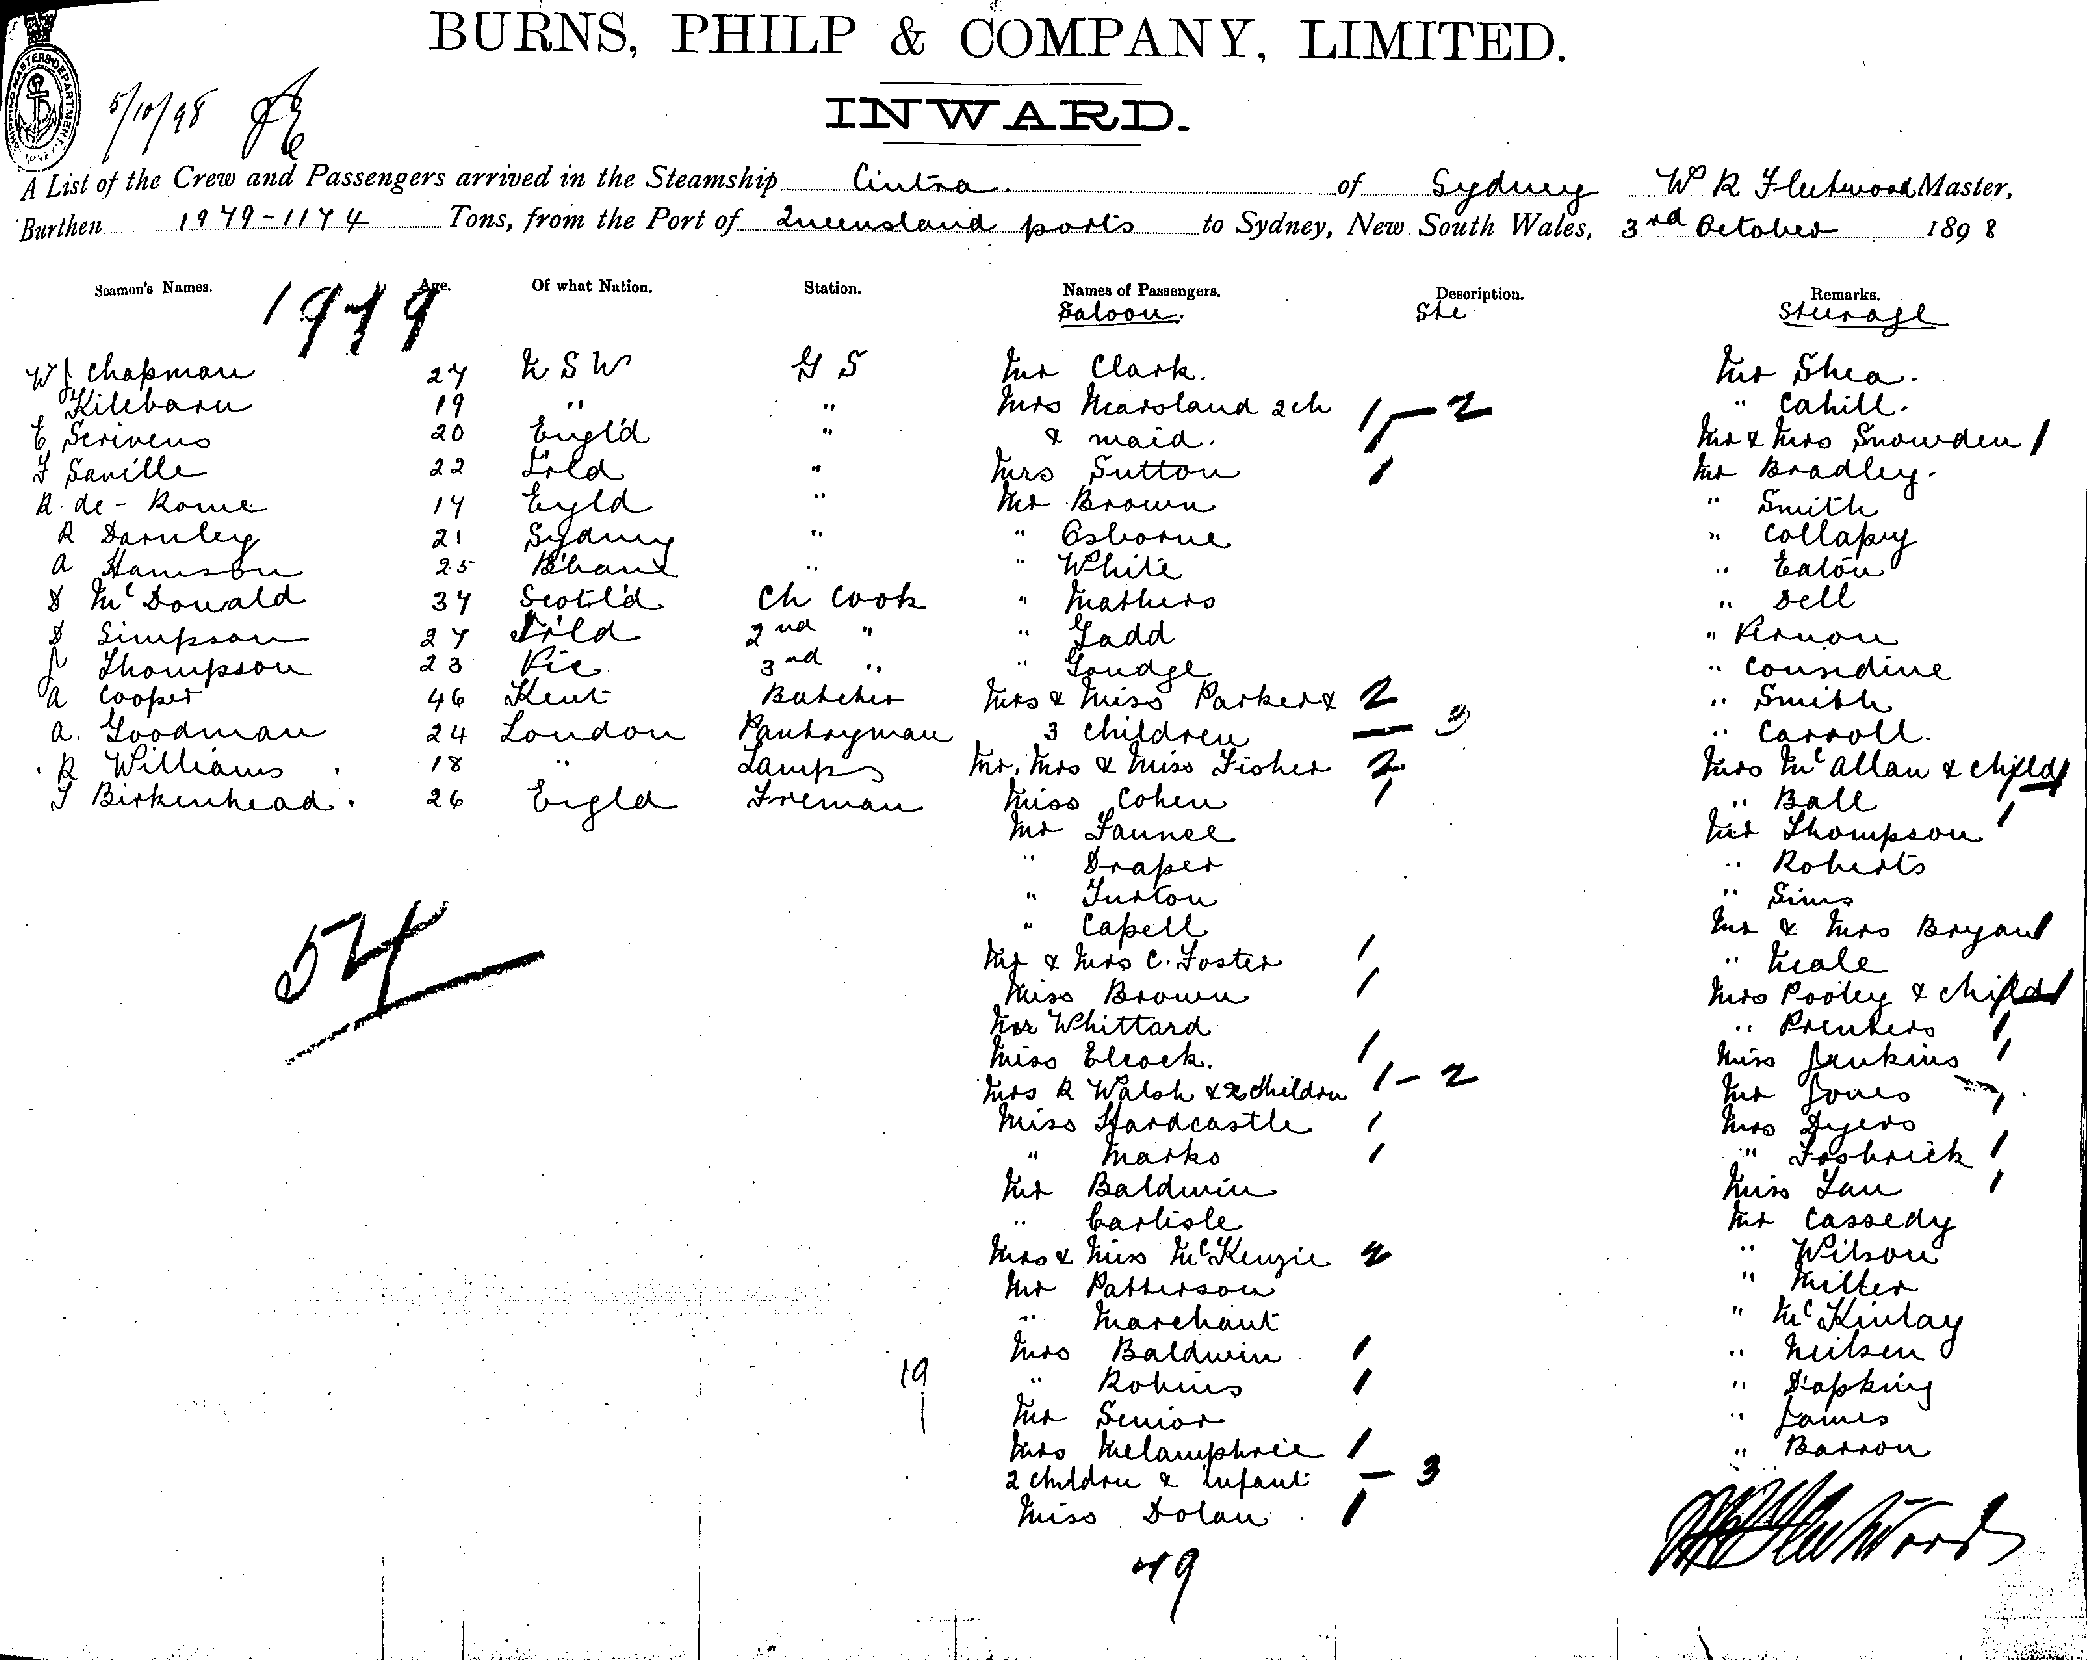 BURNS, PHILP & COMPANY, LIMITED.
INWARD.
5/10/98
A List of the Crew and Passengers arrived in the Steamship Cintra. of Sydney W R Fleetwood Master,
Burthen 1979-1174 Tons, from the Port of Queensland ports to Sydney, New South Wales, 3rd October 1898
Seamen's Names. Age. Of what Nation. Station. Names of Passengers. Description. Remarks.
1979 Saloon. Ste Steerage
W J Chapman 27 N S W G S Mr Clark. Mr Shea.
Kilebarn 19 " " Mrs Marsland 2 ch 1 - 2 " Cahill.
E Scrivens 20 Engl'd " & maid. 1 Mr & Mrs Snowden 1
F Saville 22 Irld " Mrs Sutton 1 Mr Bradley.
R. de - Rome 17 Egld " Mr Brown " Smith
R Darnley 21 Sydney " " Osborne " Collapy
A Hamson 25 B'bane " " White " Eaton
D McDonald 37 Scotl'd Ch Cook " Mathers " Dell
D Simpson 27 Irld 2nd " " Gadd " Vernon
J Thompson 23 Vic 3rd " " Goudge " Considine
A Cooper 46 Kent Butcher Mrs & Miss Parker & 2 " Smith
A. Goodman 24 London Pantryman 3 children - 3 " Carroll.
R Williams 18 " Lamps Mr, Mrs & Miss Fisher 2 Mrs McAllan & child 1
T Birkenhead. 26 Engld Freman Miss Cohen 1 " Ball 1
Mr Faunce Mr Thompson
" Draper " Roberts
" Turton " Sims
54 " Capell Mr & Mrs Bryant
Mr & Mrs C. Foster 1 " Neale
Miss Brown 1 Mrs Pooley & child 1
Mr Whittard " Prenters 1
Miss Elcock. 1 Miss Jenkins 1
Mrs R Walsh & 2 children 1 - 2 Mr Jones
Miss Hardcastle 1 Mrs Dyers 1
" Marks 1 " Fosbrick 1
Mr Baldwin Miss Lau 1
" Carlisle Mr Cassedy
Mrs & Miss McKenzie 2 " Wilson
Mr Patterson " Miller
" Marchant " McKinlay
Mrs Baldwin 1 " Neilsen
19 " Robins 1 " Dapking
Mr Senior " James
Mrs Melamphrie 1 " Barron
2 children & infant - 3
Miss Dolan 1
49
W R Fleetwood